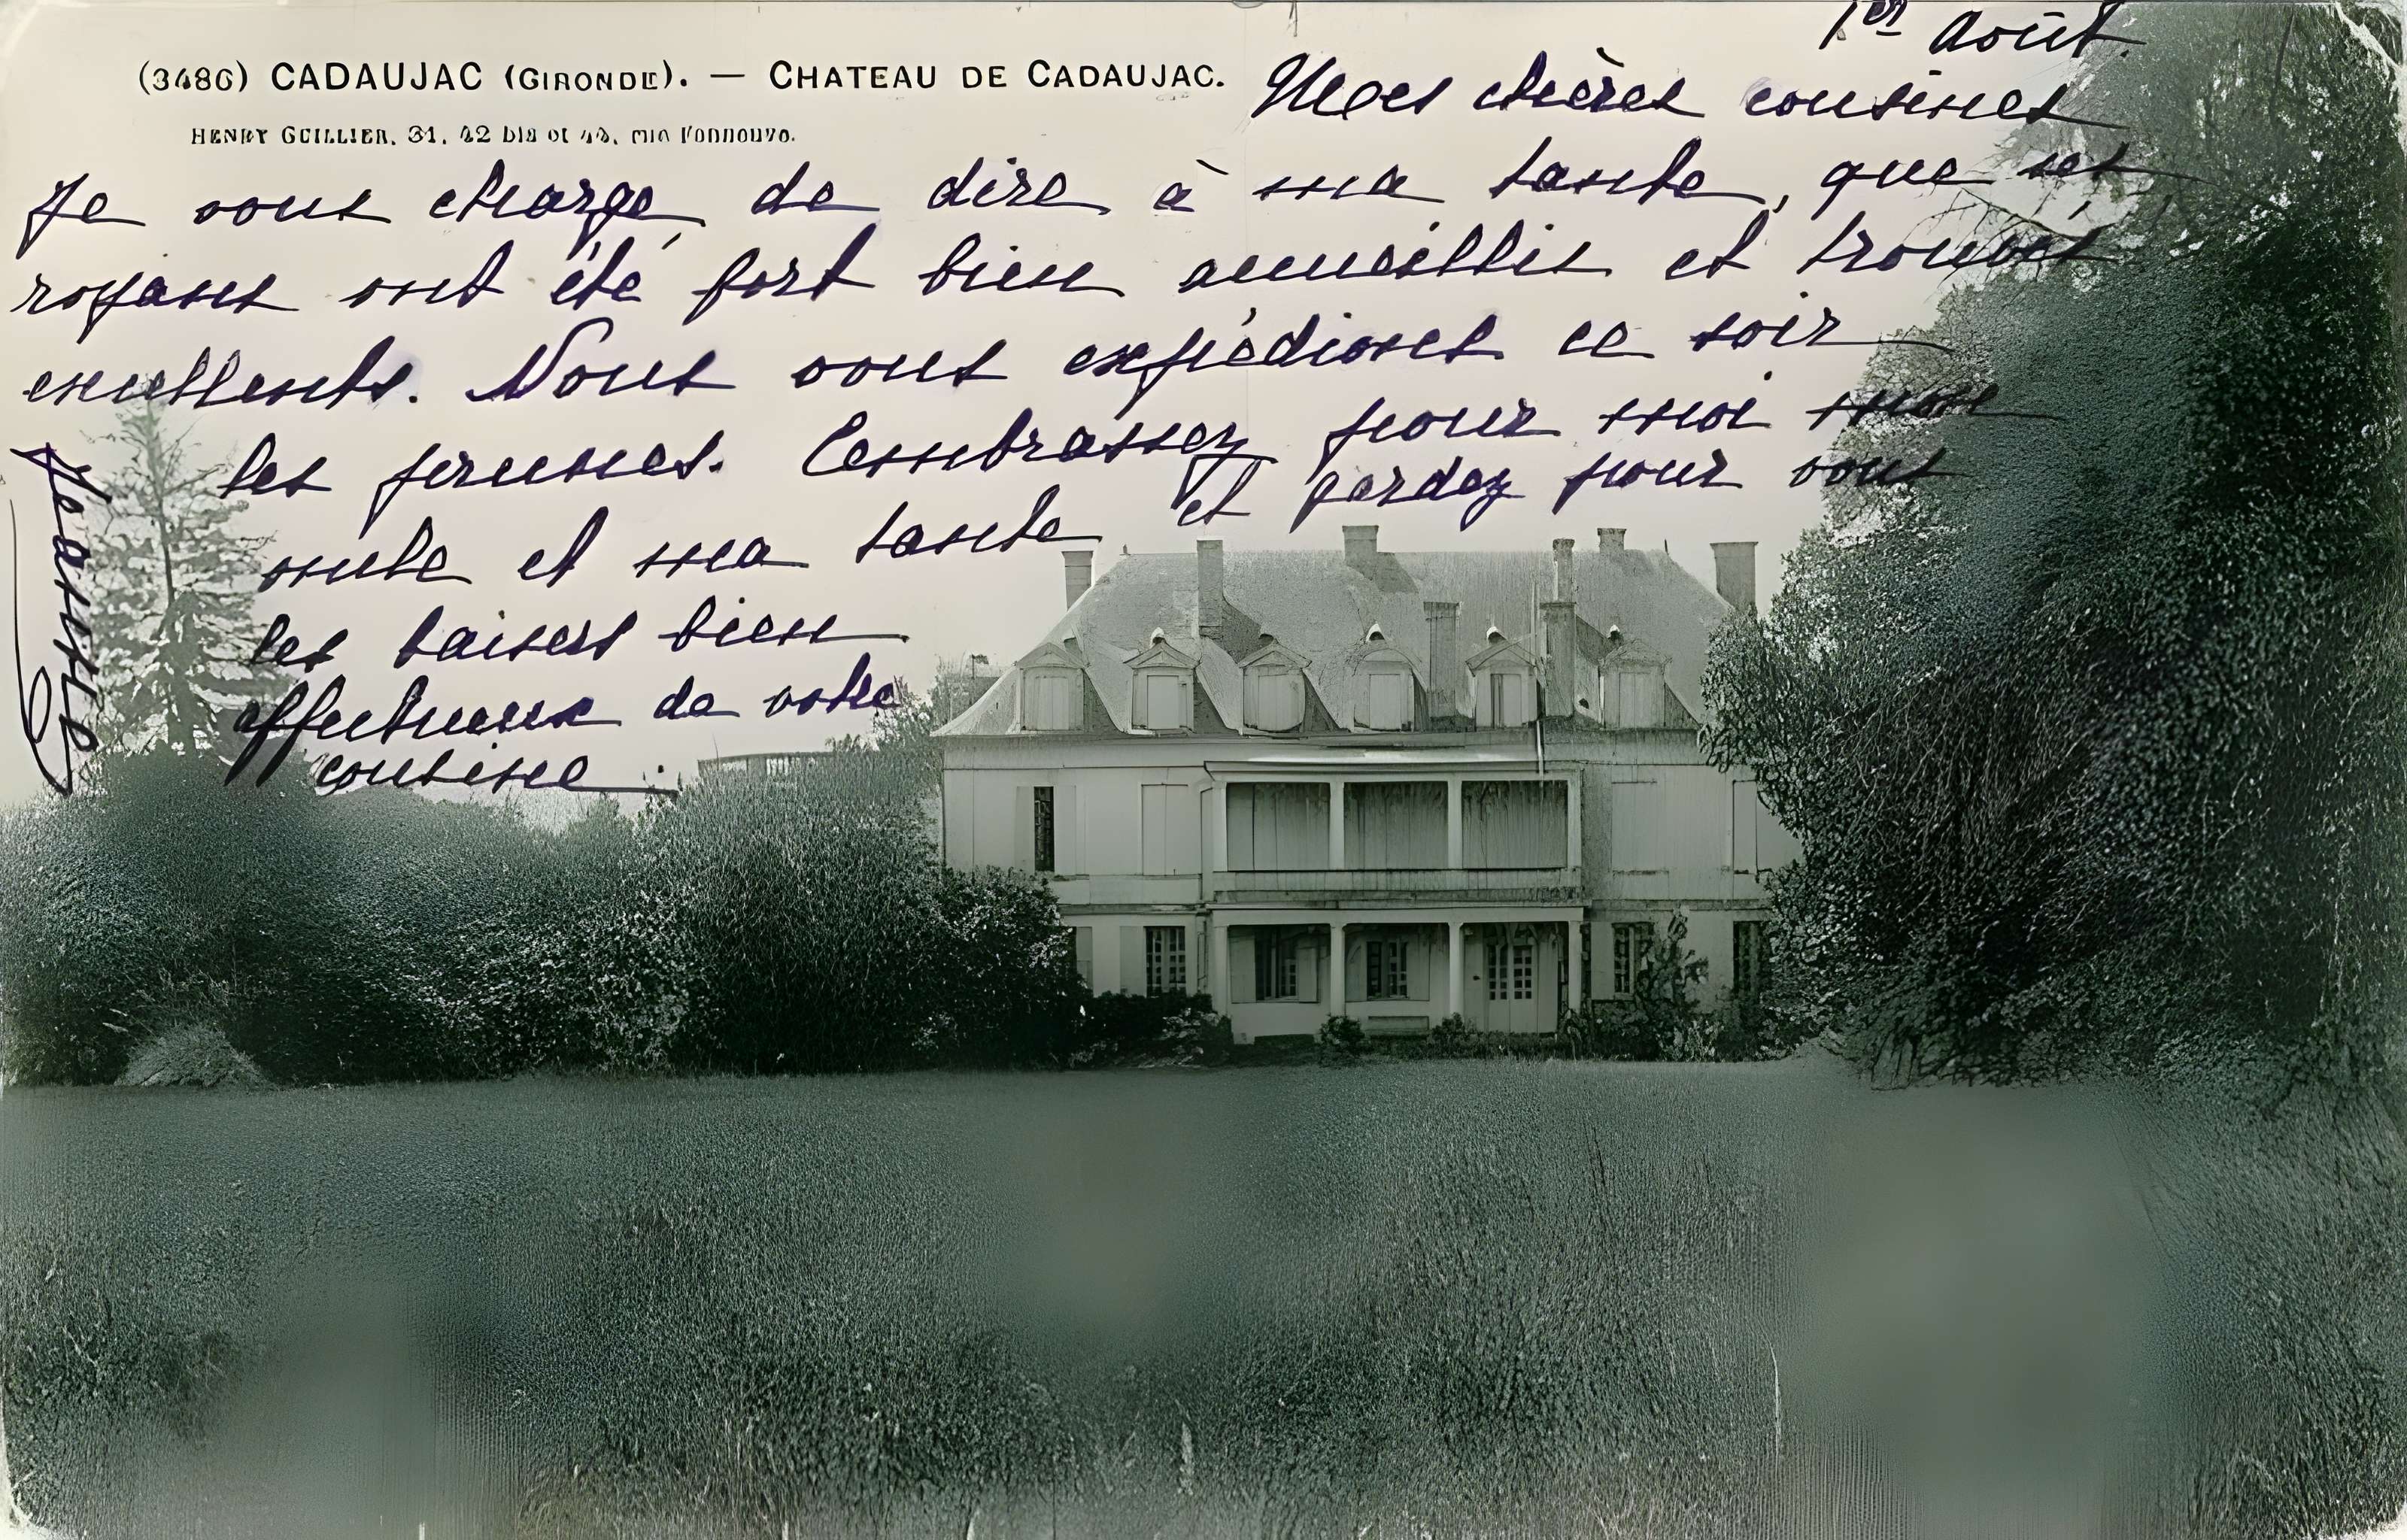 1er Août.
(3486) CADAUJAC (GIRONDE). — CHATEAU DE CADAUJAC.
HENRY GUILLIER, 31, 42 bis et 44,
Mes chères cousines
Je vous charge de dire à ma tante, que ses
royans ont été fort bien accueillis et trouvés
excellents. Nous vous expédions ce soir
les prunes. Embrassez pour moi mon
oncle et ma tante et gardez pour vous
les baisers bien
affectueux de votre
cousine.
Jeanne